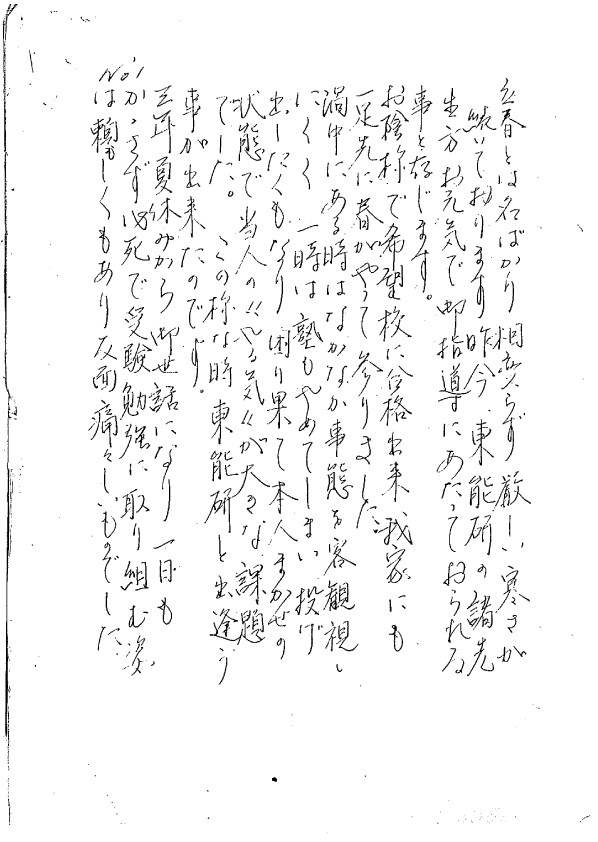 立春とは名ばかり相変らず厳しい寒さが
続いております昨今、東能研の諸先
生方お元気で御指導にあたっておられる
事と存じます。
お陰様で希望校に合格出来我家にも
一足先に春がやって参りました。
渦中にある時はなかなか事態を客観視し
にくく一時は塾もやめてしまい投げ
出したくもなり困り果て本人まかせの
状態で当人の〝やる気〟が大きな課題
でした。この様な時東能研と出逢う
事が出来たのです。
三年夏休みから御世話になり一日も
かかさず必死で受験勉強に取り組む姿
は頼もしくもあり反面痛々しいものでした。
No.1